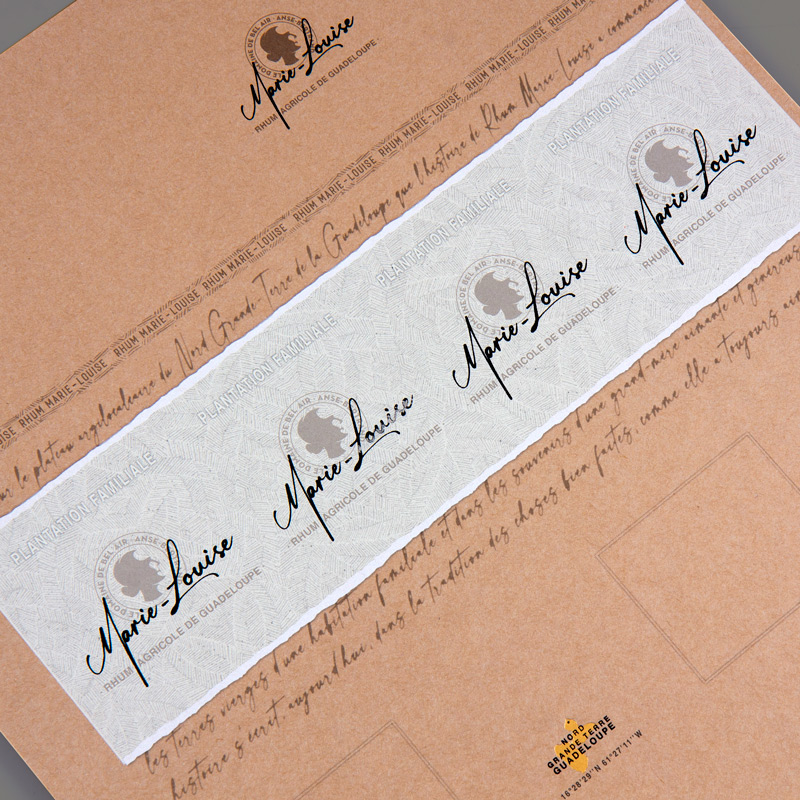 LE DOMAINE DE BEL AIR · ANSE-B
Marie-Louise
RHUM AGRICOLE DE GUADELOUPE
RHUM MARIE-LOUISE RHUM MARIE-LOUISE RHUM MARIE-LOUISE RHUM MARIE-LOUISE RHUM MARIE-LOUISE RHUM MARIE-LOUISE RHUM MARIE-LOUISE
ur le plateau argilocalcaire du Nord Grande-Terre de la Guadeloupe que l'histoire de Rhum Marie-Louise a commencé
PLANTATION FAMILIALE PLANTATION FAMILIALE PLANTATION FAMILIALE PLANTATION FAMILIALE
LE DOMAINE DE BEL AIR · ANSE-B
Marie-Louise
RHUM AGRICOLE DE GUADELOUPE
LE DOMAINE DE BEL AIR · ANSE-B
Marie-Louise
RHUM AGRICOLE DE GUADELOUPE
LE DOMAINE DE BEL AIR · ANSE-B
Marie-Louise
RHUM AGRICOLE DE GUADELOUPE
LE DOMAINE DE BEL AIR · ANSE-B
Marie-Louise
RHUM AGRICOLE DE GUADELOUPE
les terres vierges d'une habitation familiale et dans les souvenirs d'une grand-mère aimante et généreuse
histoire s'écrit, aujourd'hui, dans la tradition des choses bien faites, comme elle a toujours aim
NORD
GRANDE TERRE
GUADELOUPE
16°28'29''N 61°27'11''W